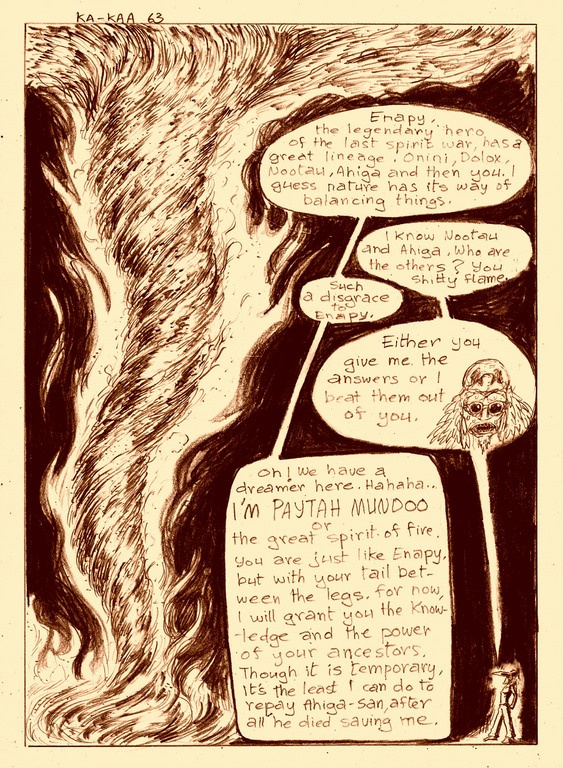 KA-KAA 63
Enapy,
the legendary hero
of the last spirit war, has a
great lineage. Onini, Dolox,
Nootau, Ahiga and then you. I
guess nature has its way of
balancing things.
I know Nootau
and Ahiga, Who are
the others? You
shitty flame.
Such
a disgrace
to
Enapy.
Either you
give me the
answers or I
beat them out
of you.
Oh! We have a
dreamer here. Hahaha..
I'M PAYTAH MUNDOO
or
the great spirit of fire.
You are just like Enapy,
but with your tail bet-
ween the legs. for now,
I will grant you the Know-
-ledge and the power
of your ancestors.
Though it is temporary,
It's the least I can do to
repay Ahiga-san, after
all he died saving me.